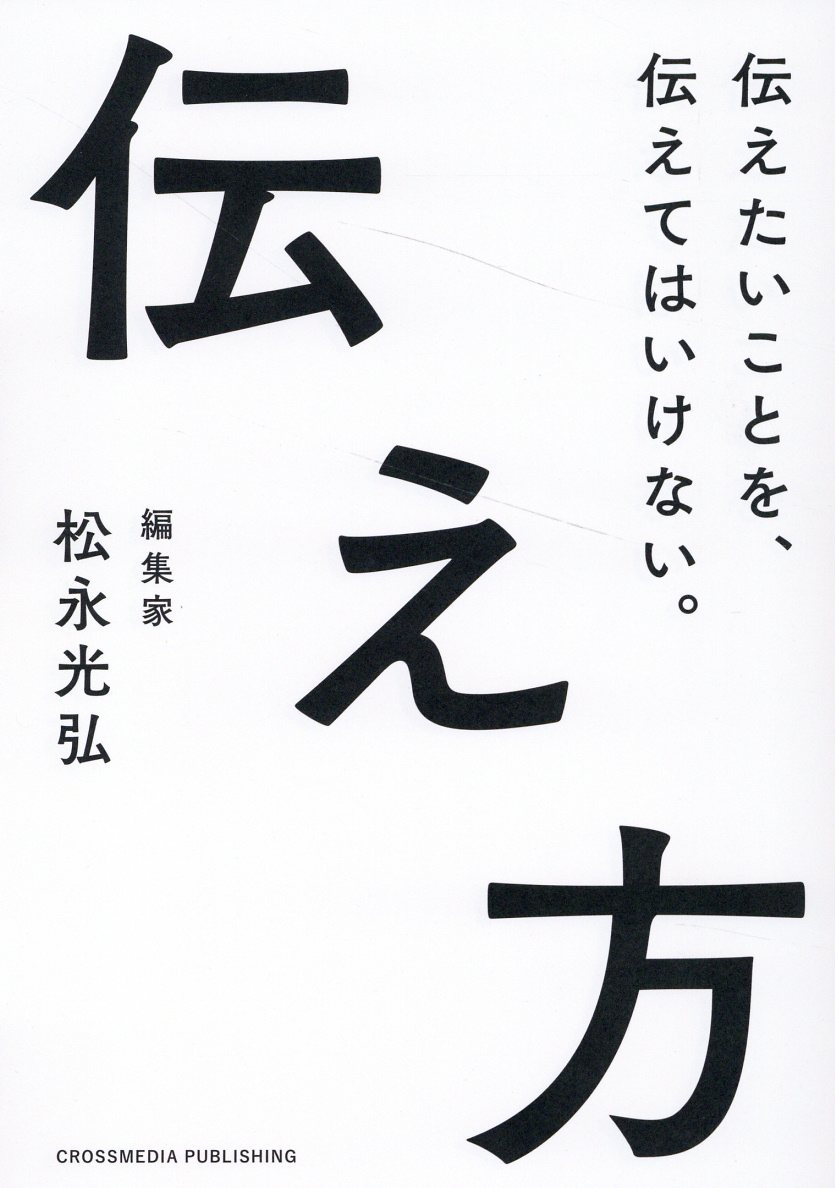 伝えたいことを、
伝えてはいけない。
伝え方
編集家
松永光弘
CROSSMEDIA PUBLISHING